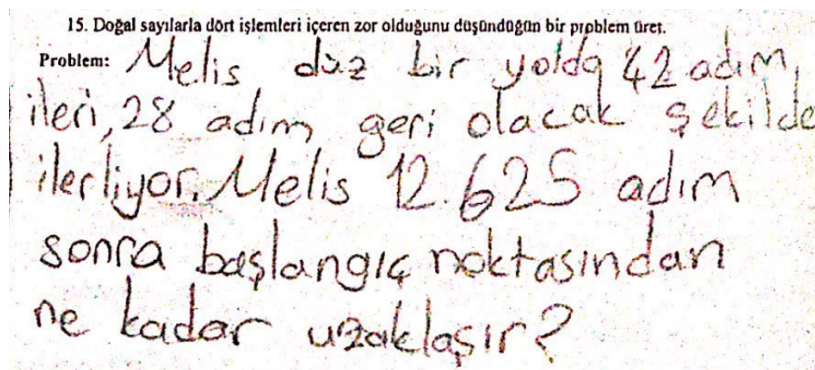 15. Doğal sayılarla dört işlemleri içeren zor olduğunu düşündüğün bir problem üret.
Problem: Melis düz bir yolda 42 adım
ileri, 28 adım geri olacak şekilde
ilerliyor. Melis 12.625 adım
sonra başlangıç noktasından
ne kadar uzaklaşır?